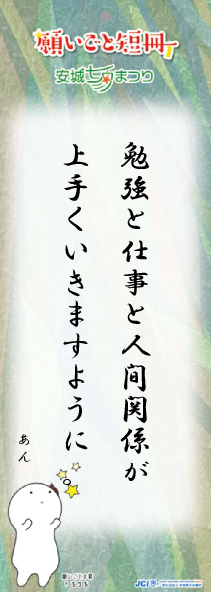 願いごと短冊
安城七夕まつり
勉強と仕事と人間関係が
上手くいきますように
あん
JCI